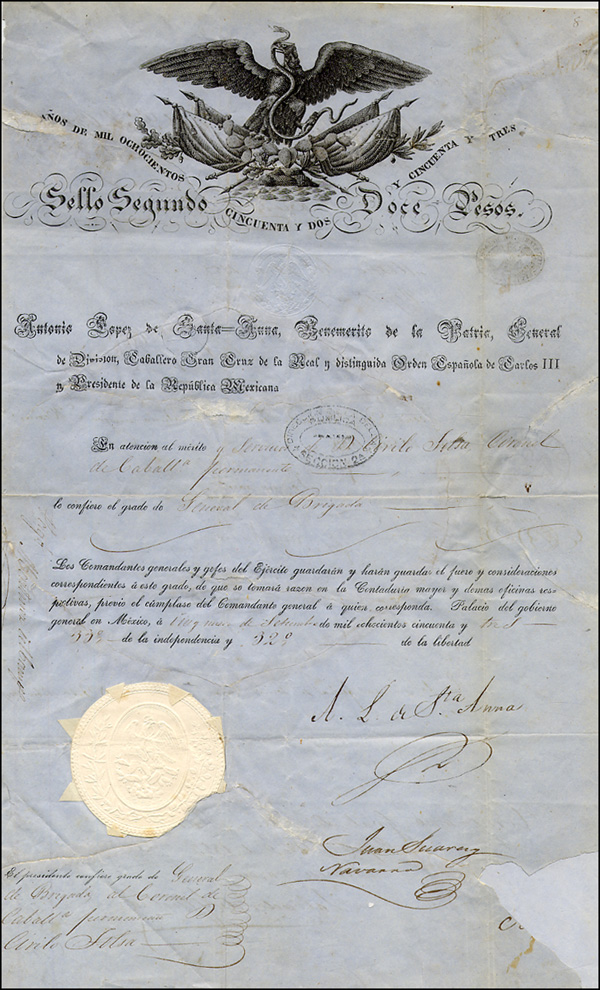 8
AÑOS DE MIL OCHOCIENTOS
CINCUENTA Y DOS
Y CINCUENTA Y TRES
Sello Segundo Doce Pesos.
Antonio Lopez de Santa=Anna, Benemerito de la Patria, General
de Division, Caballero Gran Cruz de la Real y distinguida Orden Española de Carlos III
y Presidente de la República Mexicana
SECCION 2A
En atencion al mérito y servicios de D Cirilo Coronel
de Caballa permanente
le confiero el grado de General de Brigada
Los Comandantes generales y gefes del Ejército guardarán y harán guardar el fuero y consideraciones
correspondientes á este grado, de que se tomará razon en la Contaduría mayor y demas oficinas res-
pectivas, previo el cúmplase del Comandante general á quien corresponda. Palacio del gobierno
general en México, á de Setiembre de mil ochocientos cincuenta y tres
33º de la independencia y 32º de la libertad
A. L. de Sta Anna
Juan Suarez
Navarro
El presidente confiere grado de General
de Brigada al Coronel de
Caballa permanente D
Cirilo